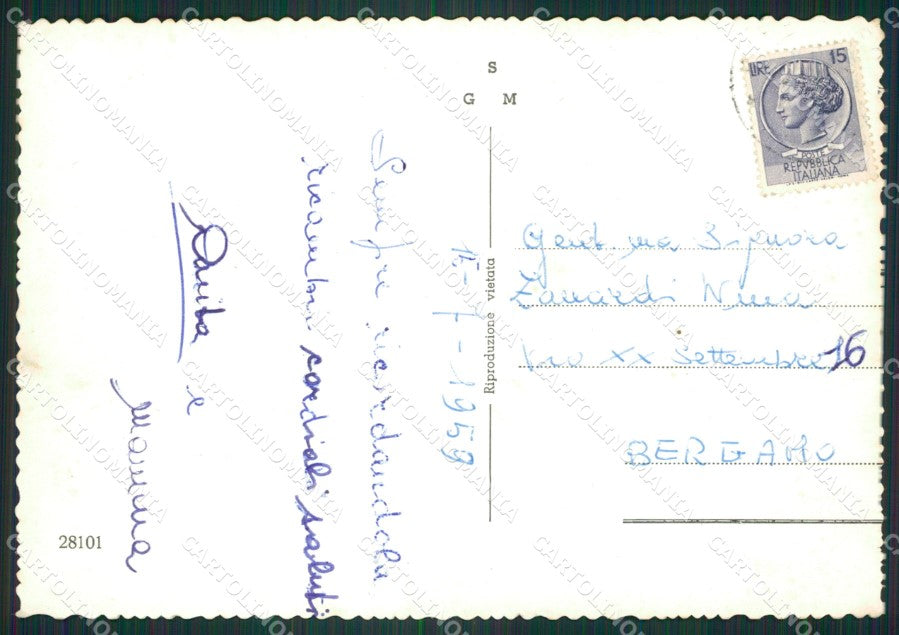 S
G M
LIRE 15
POSTE
REPVBBLICA
ITALIANA
15-7-1959
Sempre ricordandola
ricambio cordiali saluti
Danila e
Mamma
Riproduzione vietata
Gent.ma Signora
Zanardi Nina
Via XX Settembre 16
BERGAMO
28101
CARTOLINOMANIA